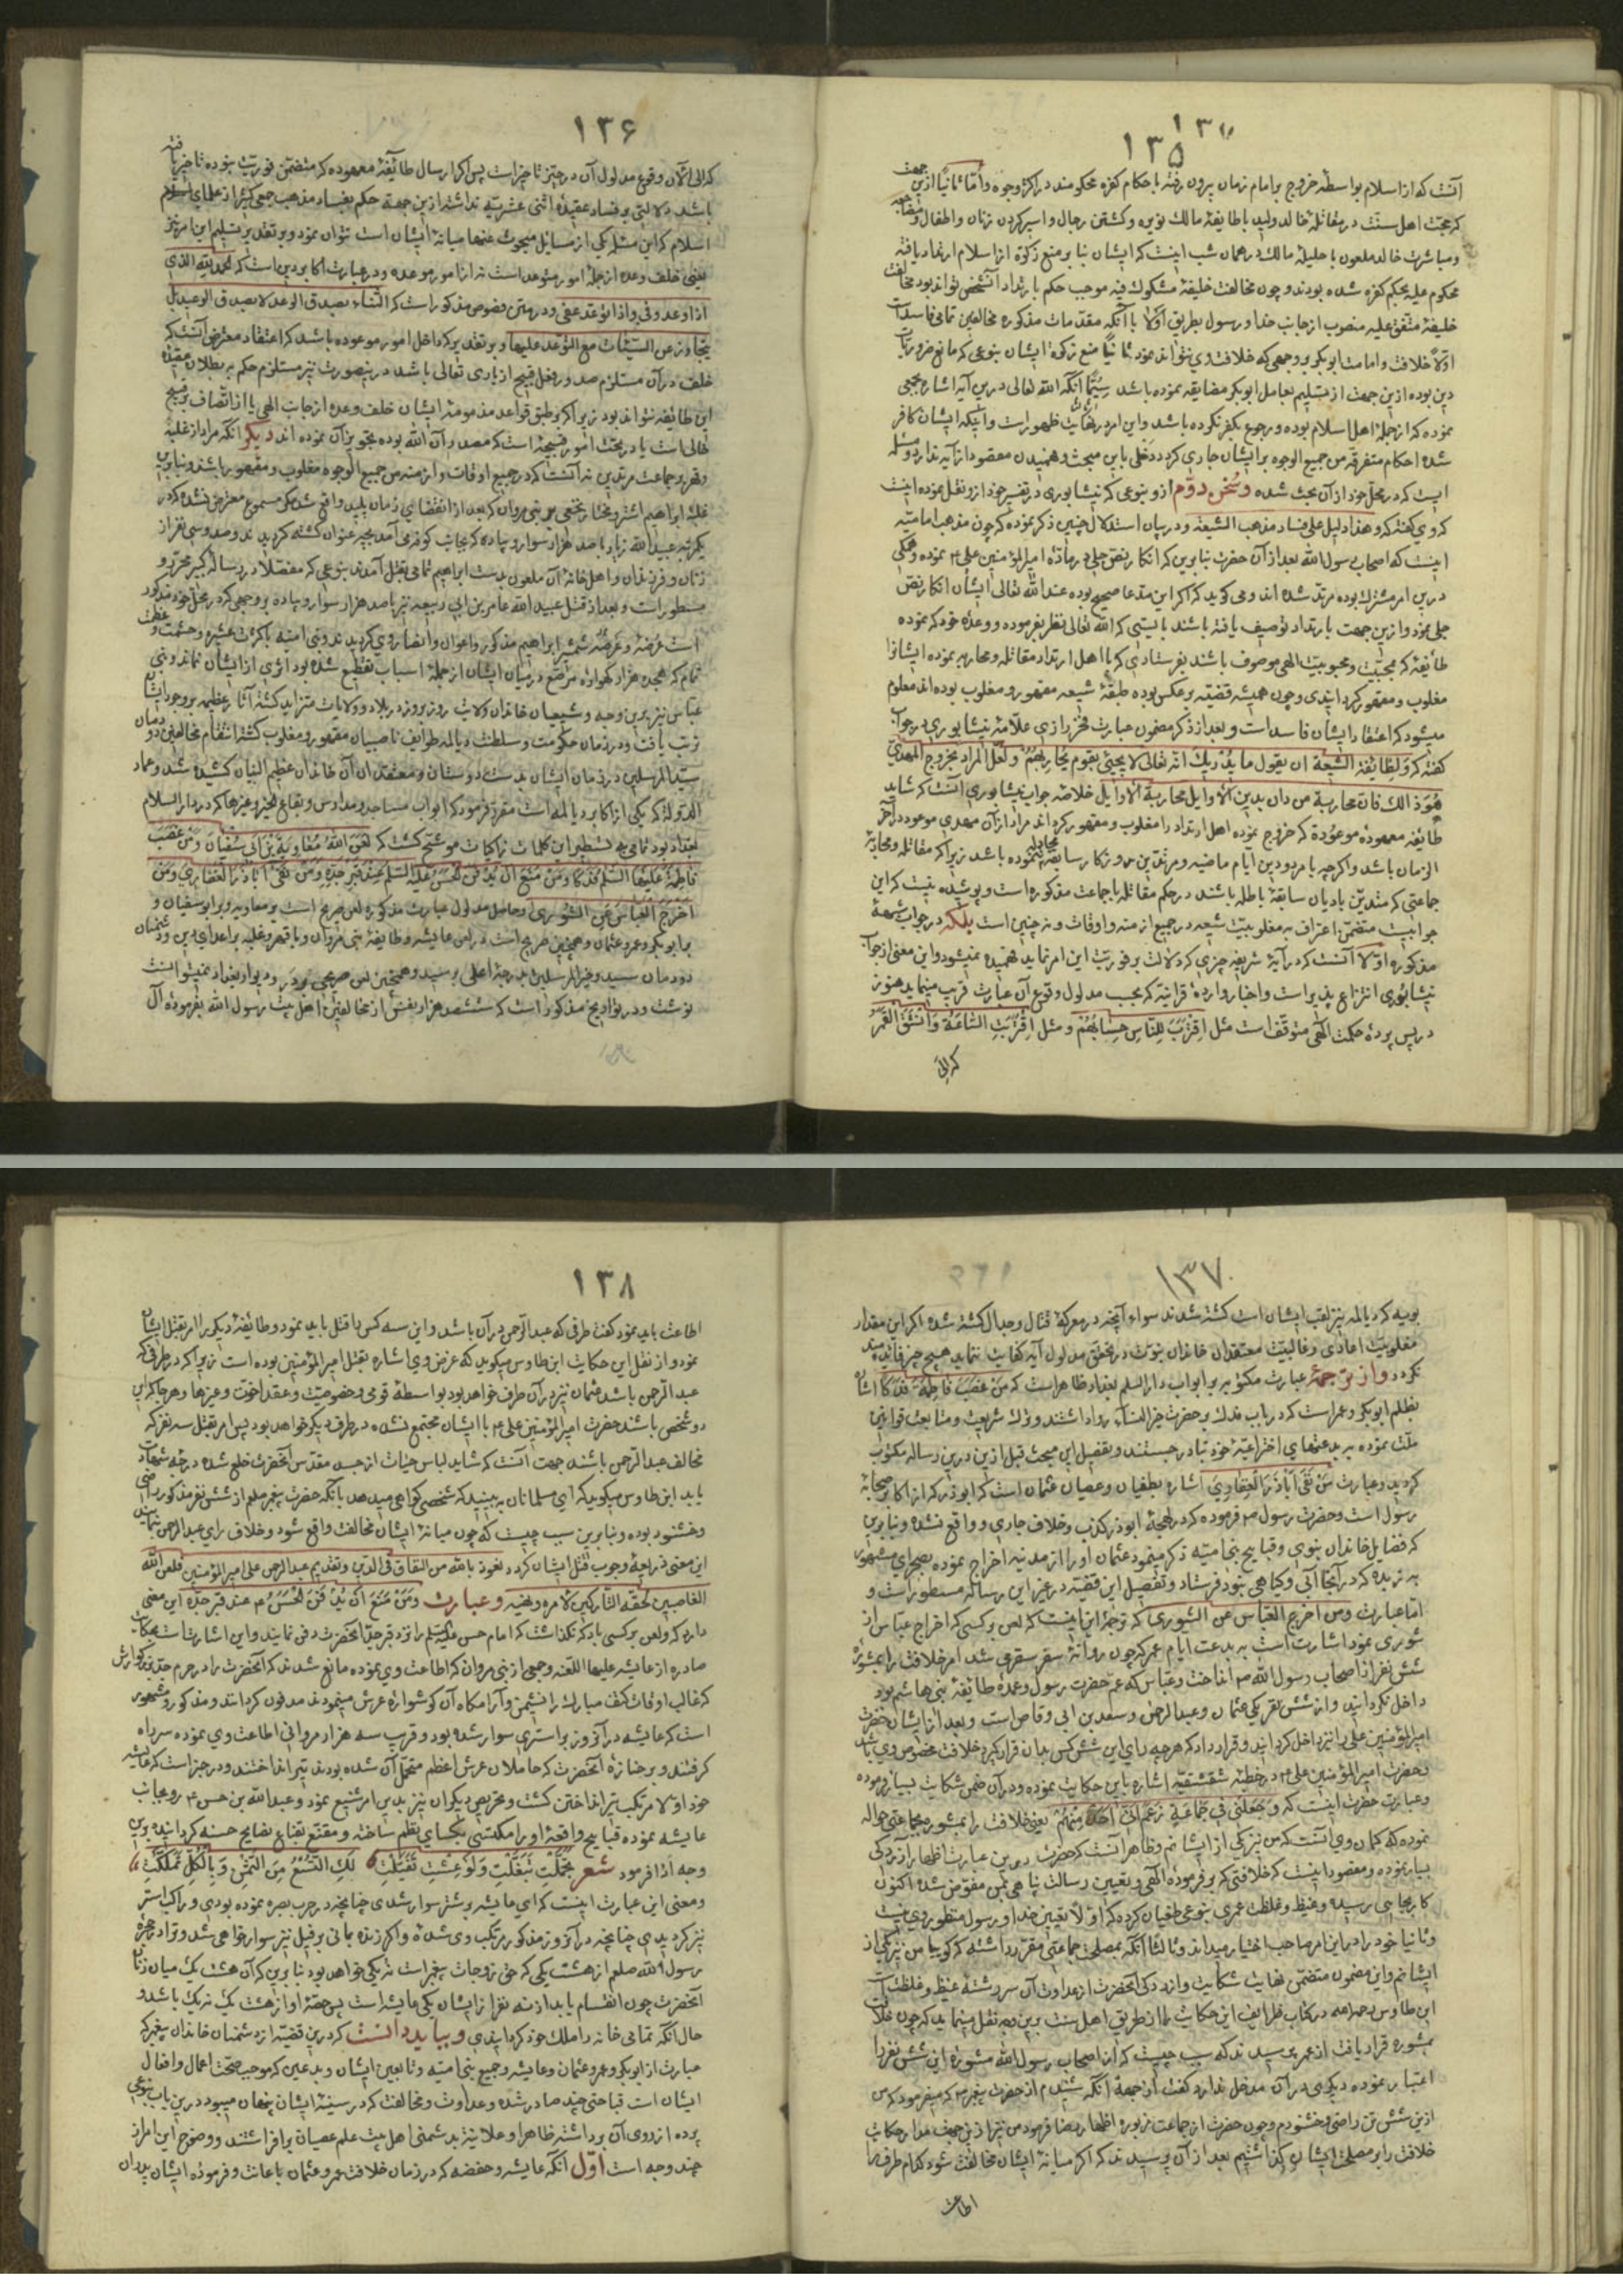 ۱۳۵
آنست که از اسلام بواسطهٔ خروج بر امام زمان بیرون رفته باحکام کفره محکومند در اکثر وجوه و امّا ثانیاً ازین جهت
که حجّت اهل سنّت در مقاتلهٔ خالد ولید باطایفهٔ مالک نویره و کشتن رجال و اسیر کردن زنان و اطفال و
و مباشرت خالد ملعون با حلیلهٔ مالک در همان شب اینست که ایشان بنا بر منع زکوة از اسلام ارتداد یافته
محکوم علیه بحکم کفره شده بودند و چون مخالفت خلیفهٔ مشکوک فیه موجب حکم بارتداد آنشخص تواند بود مخالفت
خلیفهٔ متّفق علیه منصوب از جانب خدا و رسول بطریق اولا با آنکه مقدّمات مذکوره مخالفین تمامی فاسد است
اوّلاً خلافت و امامت ابوبکر بر وجهی که خلافت وی نتواند بود ثانیاً منع زکوة ایشان بنوعی که مانع ضروریات
دین بوده ازین جهت از تسلیم بعامل ابوبکر مضایقه نموده باشد سیّما آنکه الله تعالی درین آیه اشاره بجمعی
نموده که از جملهٔ اهل اسلام بوده و رجوع بکفر نکرده باشد و این امر در نهایت ظهور است و اینکه ایشان کافر
شده احکام متفرقه من جمیع الوجوه بر ایشان جاری کردد دخلی باین مبحث و فهمیدن مقصود از آیه ندارد و مسئله
ایست که در محلّ خود از آن بحث شده و سخن دوّم از و بنوعی که نیشابوری در تفسیر خود از و نقل نموده اینست
که وی کفته که و هذا دلیل علی فساد مذهب الشیعة و در بیان استدلال چنین ذکر نموده که چون مذهب امامیّه
اینست که اصحاب رسول الله بعد از آن حضرت بنا برین که انکار نصّ جلی در مادّهٔ امیر المؤمنین علی ع نموده و همکی
درین امر مشترک بوده مرتد شده اند و می کوید که اگر این مدّعا صحیح بوده عند الله تعالی ایشان انکار نصّ
جلی نمود و ازین جهت بارتداد توصیف یافته باشند بایستی که الله تعالی نظر بفرموده و وعدهٔ خود که نموده
طائفهٔ که محبّیت و محبوبیّت الهی موصوف باشند بفرستادی که با اهل ارتداد مقاتله و محاربه نموده ایشانرا
مغلوب و مقهور کردانیدی و چون همیشه قضیّه بر عکس بوده طبقهٔ شیعه مقهور و مغلوب بوده اند معلوم
میشود که اعتقاد ایشان فاسد است و بعد از ذکر مضمون عبارت فخر رازی علّامهٔ نیشابوری در جواب
کفته که و لطائفة الشیعة ان یقول ما یدریک انه تعالی لا یجیئ بقوم یحاربهم و لعلّ المراد بخروج المهدی
هو ذالک فان محاربة من دان بدین الاوایل محاربة الاوایل خلاصهٔ جواب نیشابوری آنست که شاید
طایفه معهودهٔ موعوده که خروج نموده اهل ارتداد را مغلوب و مقهور کرداند مراد از آن مهدی موعود در آخر
الزمان باشد
جماعتی که متدیّن بادیان سابقهٔ باطله باشند در حکم مقاتله با جماعت مذکوره است و پوشیده نیست که این
جوابیست متضمّن اعتراف به مغلوبیّت شیعه در جمیع ازمنه و اوقات و نه چنین است بلکه در جواب شبههٔ
مذکوره اوّلا آنست که در آیهٔ شریفه چیزی که دلالت بر فوریّت این امر نماید فهمیده نمیشود و این معنی از جواب
نیشابوری انتزاع پذیر است و اخبار واردهٔ قرانیّه که بحسب مدلول وقوع آن عبارت قریب مینماید هنوز
در پس پردهٔ حکمت الهی متوقف است مثل اقترب للناس حسابهم و مثل اقتربت الساعة و انشق القمر
که الی
۱۳۶
که الی الآن وقوع مدلول آن در حیّز تاخیر است پس اکر ارسال طائفهٔ معهوده که متضمّن فوریّت نبوده تاخیر یافته
باشد دلالتی بر فساد عقیدهٔ اثنی عشریّه نداشته ازین جهة حکم بفساد مذهب جمعی کثیر از علمای اسلام
اسلام که این مسئله یکی از مسایل مبحوث عنهما میانهٔ ایشان است نتوان نمود و بر تقدیر تسلیم این امر نیز
یعنی خلف وعده از جملهٔ امور متوعد است نه از امور موعده و در عبارت اکابر دین است که الحمد لله الذی
اذا وعد وفی و اذا توعّد عفی و در متن فصوص مذکور است که الثناء بصدق الوعد لا بصدق الوعید بل
یتجاوز عن السیّئات مع التوعّد علیها و بر تقدیر که داخل امور موعوده باشد که اعتقاد معترض آنست که
خلف در آن مستلزم صدور فعل قبیح از باری تعالی باشد در ینصورت نیز مستلزم حکم به بطلان عقیدهٔ
این طائفه نتواند بود زیرا که بر طبق قواعد مذمومهٔ ایشان خلف وعده از جانب الهی یا از اتّصاف بر قبیح
خالی است یا در تحت امور قبیحهٔ است که مصدر آن الله بوده تجویز آن نموده اند دیکر آنکه مراد از غلبه
و قهر بر جماعت مرتدین نه آنست که در جمیع اوقات و ازمنه من جمیع الوجوه مغلوب و مقهور باشند و بنا برین
غلبهٔ ابراهیم اشتر و مختار
یکمرتبه عبید الله زیاد با صد هزار سوار و پیاده که بجانب کوفه می آمد بچه عنوان کشته کردیدند و صد و سی نفر از
زنان و فرزندان و اهل خانهٔ آن ملعون بدست ابراهیم تمامی بقتل آمدند بنوعی که مفصّلا در رساله کبیر محرّر و
مسطور است و بعد از قتل عبید الله عامر بن ابی ربیعه نیز با صد هزار سوار و پیاده بر وجهی که در محلّ خود مذکور
است عُرضهٔ و عَرضهٔ شمشیر ابراهیم مذکور و اعوان و انصار وی کردیدند و بنی امیه با کثرت عشیره و حشمت و عظمت
تمام که هجده هزار کهوارهٔ مرصّع در میان ایشان از جملهٔ اسباب تقطیع شده بود اثری از ایشان نماند و بنی
عبّاس نیز برین وجه و شیعیان خاندان ولایت روز بروز در بلاد و ولایات متزاید کشته آثار عظیمه بر وجود ایشان
ترتب یافت و در زمان حکومت و سلطنت دیالمه طوایف ناصبیان مقهور و مغلوب کشته انتقام مخالفین دودمان
سیّد المرسلین در زمان ایشان بدست دوستان و معتقدان آن خاندان عظیم الشان کشیده شد و عماد
الدوله که یکی از اکابر دیالمه است مقرّر فرمود که ابواب مساجد و مدارس و بقاع الخیر و غیرها که در دار السلام
بغداد بود تمامی به تسطیر این کلمات زاکیات موشّح کشت که لعن الله معاویة بن ابی سفیان و من غصب
فاطمة علیها السلم فدکاً و من منع ان یدفن الحسن علیه السلم عند قبر جدّه و من نفی اباذر الغفاری و من
اخرج العباس عن الشوری و حاصل مدلول عبارت مذکوره لعن صریح است بر معاویه و بر ابو سفیان و
بر ابوبکر و عمر و عثمان و همچنین صریح است در لعن عایشه و طایفهٔ بنی مروان و با قهر و غلبه بر اعدای دین و دشمنان
دودمان سیّد و خیر المرسلین بدرجهٔ اعلی برسید و همچنین لعن صریحی بر در و دیوار بغداد نمیتوانست
نوشت و در تواریخ مذکور است که ششصد هزار نفس از مخالفین اهل بیت رسول الله بفرمودهٔ آل
۱۳۷
بویه که دیالمه نیز لقب ایشان است کشته شدند سواء آنچه در معرکهٔ قتال و جدال کشته شده اکر این مقدار
مغلوبیّت اعادی و غالبیّت معتقدان خاندان نبوّت در تحقّق مدلول آیه کفایت ننماید هیچ چیز فایده مند
نکردد و از ترجمهٔ عبارت مکتوبه بر ابواب دار السلم بغداد ظاهر است که من غصب فاطمة فدکا اشاره
بظلم ابوبکر و عمر است که در باب فدک بر حضرت خیر النساء روا داشتند و ترک شریعت و متابعت قوانین
ملّت نموده به بدعتهای اختراعیّهٔ خود تبادر جستند و تفصیل این مبحث قبل ازین درین رساله مکتوب
کردید و عبارت من نفی اباذر الغفاری اشاره بطغیان و عصیان عثمان است که ابوذر که از اکابر صحابهٔ
رسول است و حضرت رسول ص فرموده که در لهجهٔ ابوذر کذب و خلاف جاری و واقع نشده و بنا برین
که فضایل خاندان نبوی و قبایح بنی امیّه ذکر مینمود عثمان او را از مدنیه اخراج نموده بصحرای مشهور
به ربذه که در آنجا آبی و کیاهی نبود فرستاد و تفصیل این قضیّه در غیر این رساله مسطور است و
امّا عبارت و من اخرج العباس عن الشوری که ترجمهٔ این اینست که لعن بر کسی که اخراج عبّاس از
شوری نمود اشارت است به بدعت ایام عمر که چون روانهٔ سفر سقر می شد امر خلافت را بمشورهٔ
شش نفر از اصحاب رسول الله ص انداخت و عبّاس که عم حضرت رسول و عمدهٔ طایفهٔ بنی هاشم بود
داخل نکردانید و از شش نفر یکی عثمان و عبد الرحمن و سعد بن ابی وقاص است و بعد از ایشان حضرت
امیر المؤمنین علی را نیز داخل کردانید و قرار داد که هر چه رای این شش کس بدان قرار کیرد خلافت مخصوص وی باشد
و حضرت امیر المؤمنین علی ع در خطبه شقشقیّه اشاره باین حکایت نموده و در آن ضمن شکایت بسیار فرموده
و عبارت حضرت اینست که و جعلنی فی جماعة زعم انی احد منهم یعنی خلافت را بمشورهٔ جماعتی حواله
نموده که کمان وی آنست که من نیز یکی از ایشانم و ظاهر آنست که حضرت درین عبارت اظهار آزردکی
بسیار نموده و مقصود اینست که خلافتی که بر فرمودهٔ الهی و تعیین رسالت پناهی بمن مفوّض شده اکنون
کار بجایی رسیده و غیظ و غلظت عمری بنوعی طغیان کرده که اوّلا تعیین خدا و رسول منظور وی نیست
و ثانیا خود را در این امر صاحب اختیار میداند و ثالثا آنکه بمصلحت جماعتی مقرّر داشته که کوییا من نیز یکی از
ایشانم و این مضمون متضمّن نهایت شکایت و آزردکی آنحضرت از عداوت آن سر رشتهٔ غیظ و غلظت است
ابن طاوس رحمه الله در کتاب طرایف این حکایت را از طریق اهل سنت برین وجه نقل مینماید که چون خلافت
بمشوره قرار یافت از عمر پرسیدند که سبب چیست که از اصحاب رسول الله مشورهٔ این شش نفر را
اعتبار نموده دیکری در آن مدخل ندارد کفت از جمعة آنکه شنیدم از حضرت پیغمبر ص که میفرمود که من
ازین شش تن راضی و خشنودم و چون حضرت از جماعت مزبوره اظهار رضا فرمود من نیز ازین جهت مدار حکایت
خلافت را بر مصلحت ایشان کذاشتیم بعد از آن پرسیدند که اکر میانهٔ ایشان مخالفت شود کدام طرف را
اطاعت
۱۳۸
اطاعت باید نمود کفت طرفی که عبد الرّحمن در آن باشد و این سه کس را قتل باید نمود و طائفهٔ دیکر را امر بقتل ایشان
نمود و از نقل این حکایت ابن طاوس میکوید که غرض وی اشاره بقتل امیر المؤمنین بوده است زیرا که در طرفی که
عبد الرّحمن باشد عثمان نیز در آن طرف خواهد بود بواسطهٔ قومی و خصوصیّت و عقد اخوّت و غیرها و هر جا که این
دو شخص باشند حضرت امیر المؤمنین علی ع با ایشان مجتمع نشده در طرف دیکر خواهد بود پس امر بقتل سه نفر که
مخالف عبد الرّحمن باشند جهت آنست که شاید لباس حیات از جسد مقدّس آنحضرت خلع شده درجهٔ شهادت
یابد ابن طاوس میکوید که ای مسلمانان به بینید که شخصی کواهی میدهد بآنکه حضرت پیغمبر صلعم از شش نفر مذکور راضی
و خشنود بوده و بنا برین سبب چیست که چون میانهٔ ایشان مخالفت واقع شود و خلاف رای عبد الرحمن نمایند
این معنی ذریعهٔ وجوب قتل ایشان کردد نعوذ بالله من النفاق فی الدّین و تقدیم عبد الرحمن علی امیر المؤمنین فلعن الله
الغاصبین لحقّه التّارکین لامره و نهیه و عبارت و من منع ان یدفن الحسن ع عند قبر جدّه این معنی
دارد که و لعن بر کسی باد که نکذاشت که امام حسن علیه السلم را نزد قبر جدّ آنحضرت دفن نمایند و این اشارتست بحکایت
صادره از عایشه علیها اللعنه و جمعی از بنی مروان که اطاعت وی نموده مانع شدند که آنحضرت را در حرم جد بزرکوارش
که غالب اوقات کتف مبارک را نشیمن و آرامکاه آن کوشوارهٔ عرش مینمودند مدفون کردانند و مذکور و مشهور
است که عایشه در آنروز بر استری سوار شده بود و قریب سه هزار مروانی اطاعت وی نموده سر راه
کرفتند و بر جنازهٔ آنحضرت که حاملان عرش اعظم متحمّل آن شده بودند تیر انداختند و در خبر است که عایشه
خود اوّلا مرتکب تیر انداختن کشت و تحریص دیکران نیز بدین امر شنیع نمود و عبد الله بن حسن ع رو بجانب
عایشه نموده قبایح واقعهٔ او را بنظم ساخته و مقنّع بقناع نصایح حسنه کردانیده برین
وجه ادا فرمود شعر تجمّلت تبغّلت و لو عشت تفیّلت لک التسع من الثمن و بالکل تملّکت
و معنی این عبارت اینست که ای عایشه بر شتر سوار شدی چنانچه در حرب بصره نموده بودی و راکب استر
نیز کردیدی چنانچه در آنروز مذکور مرتکب وی شدهٔ و اکر زنده مانی بر فیل نیز سوار خواهی شد و ترا در حجرهٔ
رسول الله صلعم از هشت یکی که حق زوجات پیغمبر است نه یکی خواهد بود بنا برین که آن هشت یک میان زنان
آنحضرت چون انقسام یابد از نه نفر از ایشان یکی عایشه است پس حصّهٔ او از هشت یک نه یک باشد و
حال آنکه تمامی خانه را ملک خود کردانیدی و بباید دانست که درین قضیّه از دشمنان خاندان پیغمبر که
عبارت از ابوبکر و عمر و عثمان و عایشه و جمیع بنی امیّه و تابعین ایشان و بدعین که موجب صحّت اعمال و افعال
ایشان است قباحتی چند صادر شده و عداوت و مخالفت که در سینهٔ ایشان پنهان میبود درین باب بنوعی
پرده از روی آن برداشته ظاهرا و علانیة بدشمنی اهل بیت علم عصیان برافراشتند و وضوح این امر از
چند وجه است اوّل آنکه عایشه و حفضه که در زمان خلافت عمر و عثمان باعانت و فرمودهٔ ایشان پدران